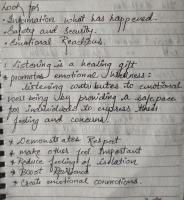 Look for
• Information what has happened.
• Safety and Security.
• Emotional Reactions.
: Listening is a healing gift
* promotes emotional wellness:
listening contributes to emotional
well being by providing a safe space
for individuals to express their
feeling and concerns.
* Demonstrates Respect
* make other feel important
* Reduce feelings of isolation
* Boost
* Create emotional connections.